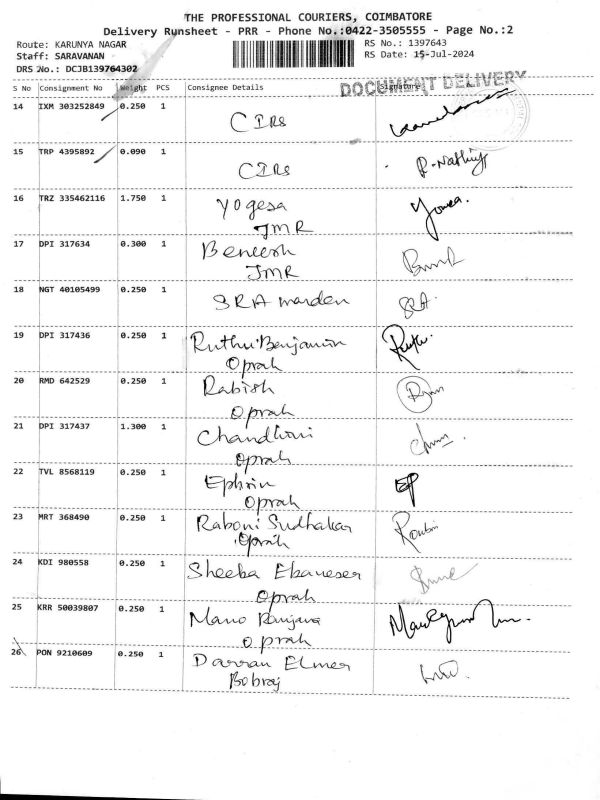 THE PROFESSIONAL COURIERS, COIMBATORE
Delivery Runsheet - PRR - Phone No.:0422-3505555 - Page No.:2
Route: KARUNYA NAGAR RS No.: 1397643
Staff: SARAVANAN RS Date: 15-Jul-2024
DRS No.: DCJB139764302
DOCUMENT DELIVERY
S No Consignment No Weight PCS Consignee Details Signature
14 IXM 303252849 0.250 1
CIRS
15 TRP 4395892 0.090 1
CIRS R.Nathiy
16 TRZ 335462116 1.750 1
Yogesa
JMR
17 DPI 317634 0.300 1
Beneesh
JMR
18 NGT 40105499 0.250 1
SRA marden SRA.
19 DPI 317436 0.250 1
Ruthu Benjamin
Oprah
20 RMD 642529 0.250 1
Rabish
Oprah
21 DPI 317437 1.300 1
Chandhini
Oprah
22 TVL 8568119 0.250 1
Ephrin EP
Oprah
23 MRT 368490 0.250 1
Raboni Sudhakar
Oprah
24 KDI 980558 0.250 1
Sheeba Ebaneser
Oprah
25 KRR 50039807 0.250 1
Mano Ranjana
Oprah
26 PON 9210609 0.250 1
Darran Elmer
Bobraj